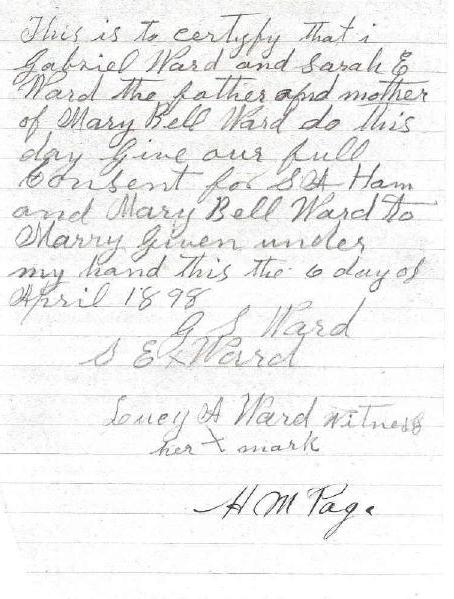 This is to certyfy that i
Gabriel Ward and Sarah E
Ward the father and mother
of Mary Bell Ward do this
day Give our full
Consent for S A Ham
and Mary Bell Ward to
Marry Given under
my hand this the 6 day of
April 1898
G S Ward
S E x Ward
Lucy A Ward witness
her x mark
H M Page